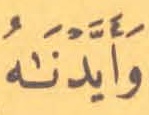 وَأَيَّدْنَٰهُ